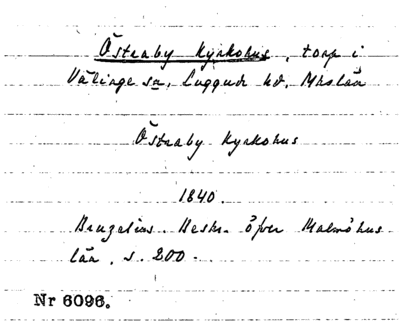 Östraby kyrkohus, torp i
Välinge sn, Luggude hd, Mhs län
Östraby Kyrkohus
1840.
Bruzelius. Beskr. öfver Malmöhus
län, s. 200.
Nr 6096.